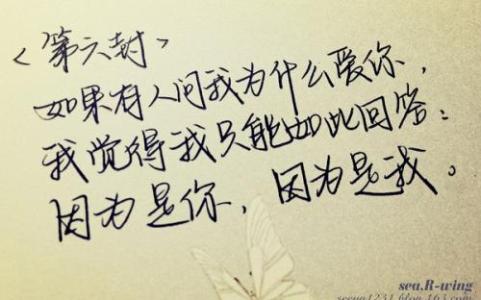 <第六封>
如果有人问我为什么爱你,
我觉得我只能如此回答:
因为是你,因为是我。
sea.R-wing